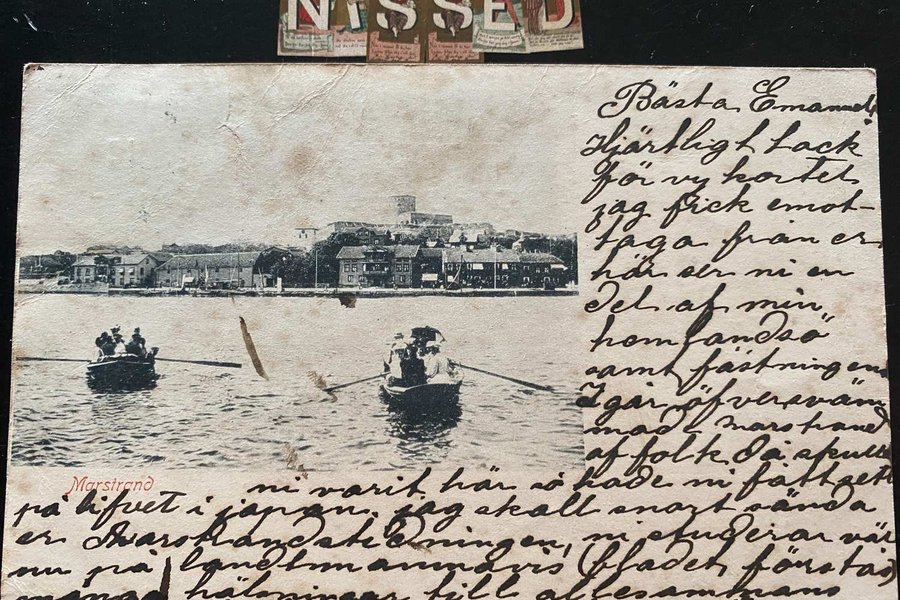 NISSED
Bästa Emanuel
Hjärtligt tack
för vykortet
jag fick emot-
taga från er
här ser ni en
del af min
hemlandsö
samt fästningen
I går öfversväm
made Marstrand
af folk Då skulle
Marstrand
ni varit här så hade ni fått sett
på lifvet i japan, jag skall snart sända
er Marstrandstidningen, ni studerar väl
nu på landtmannavis (bladet förstås)
många hälsningar till allesammans